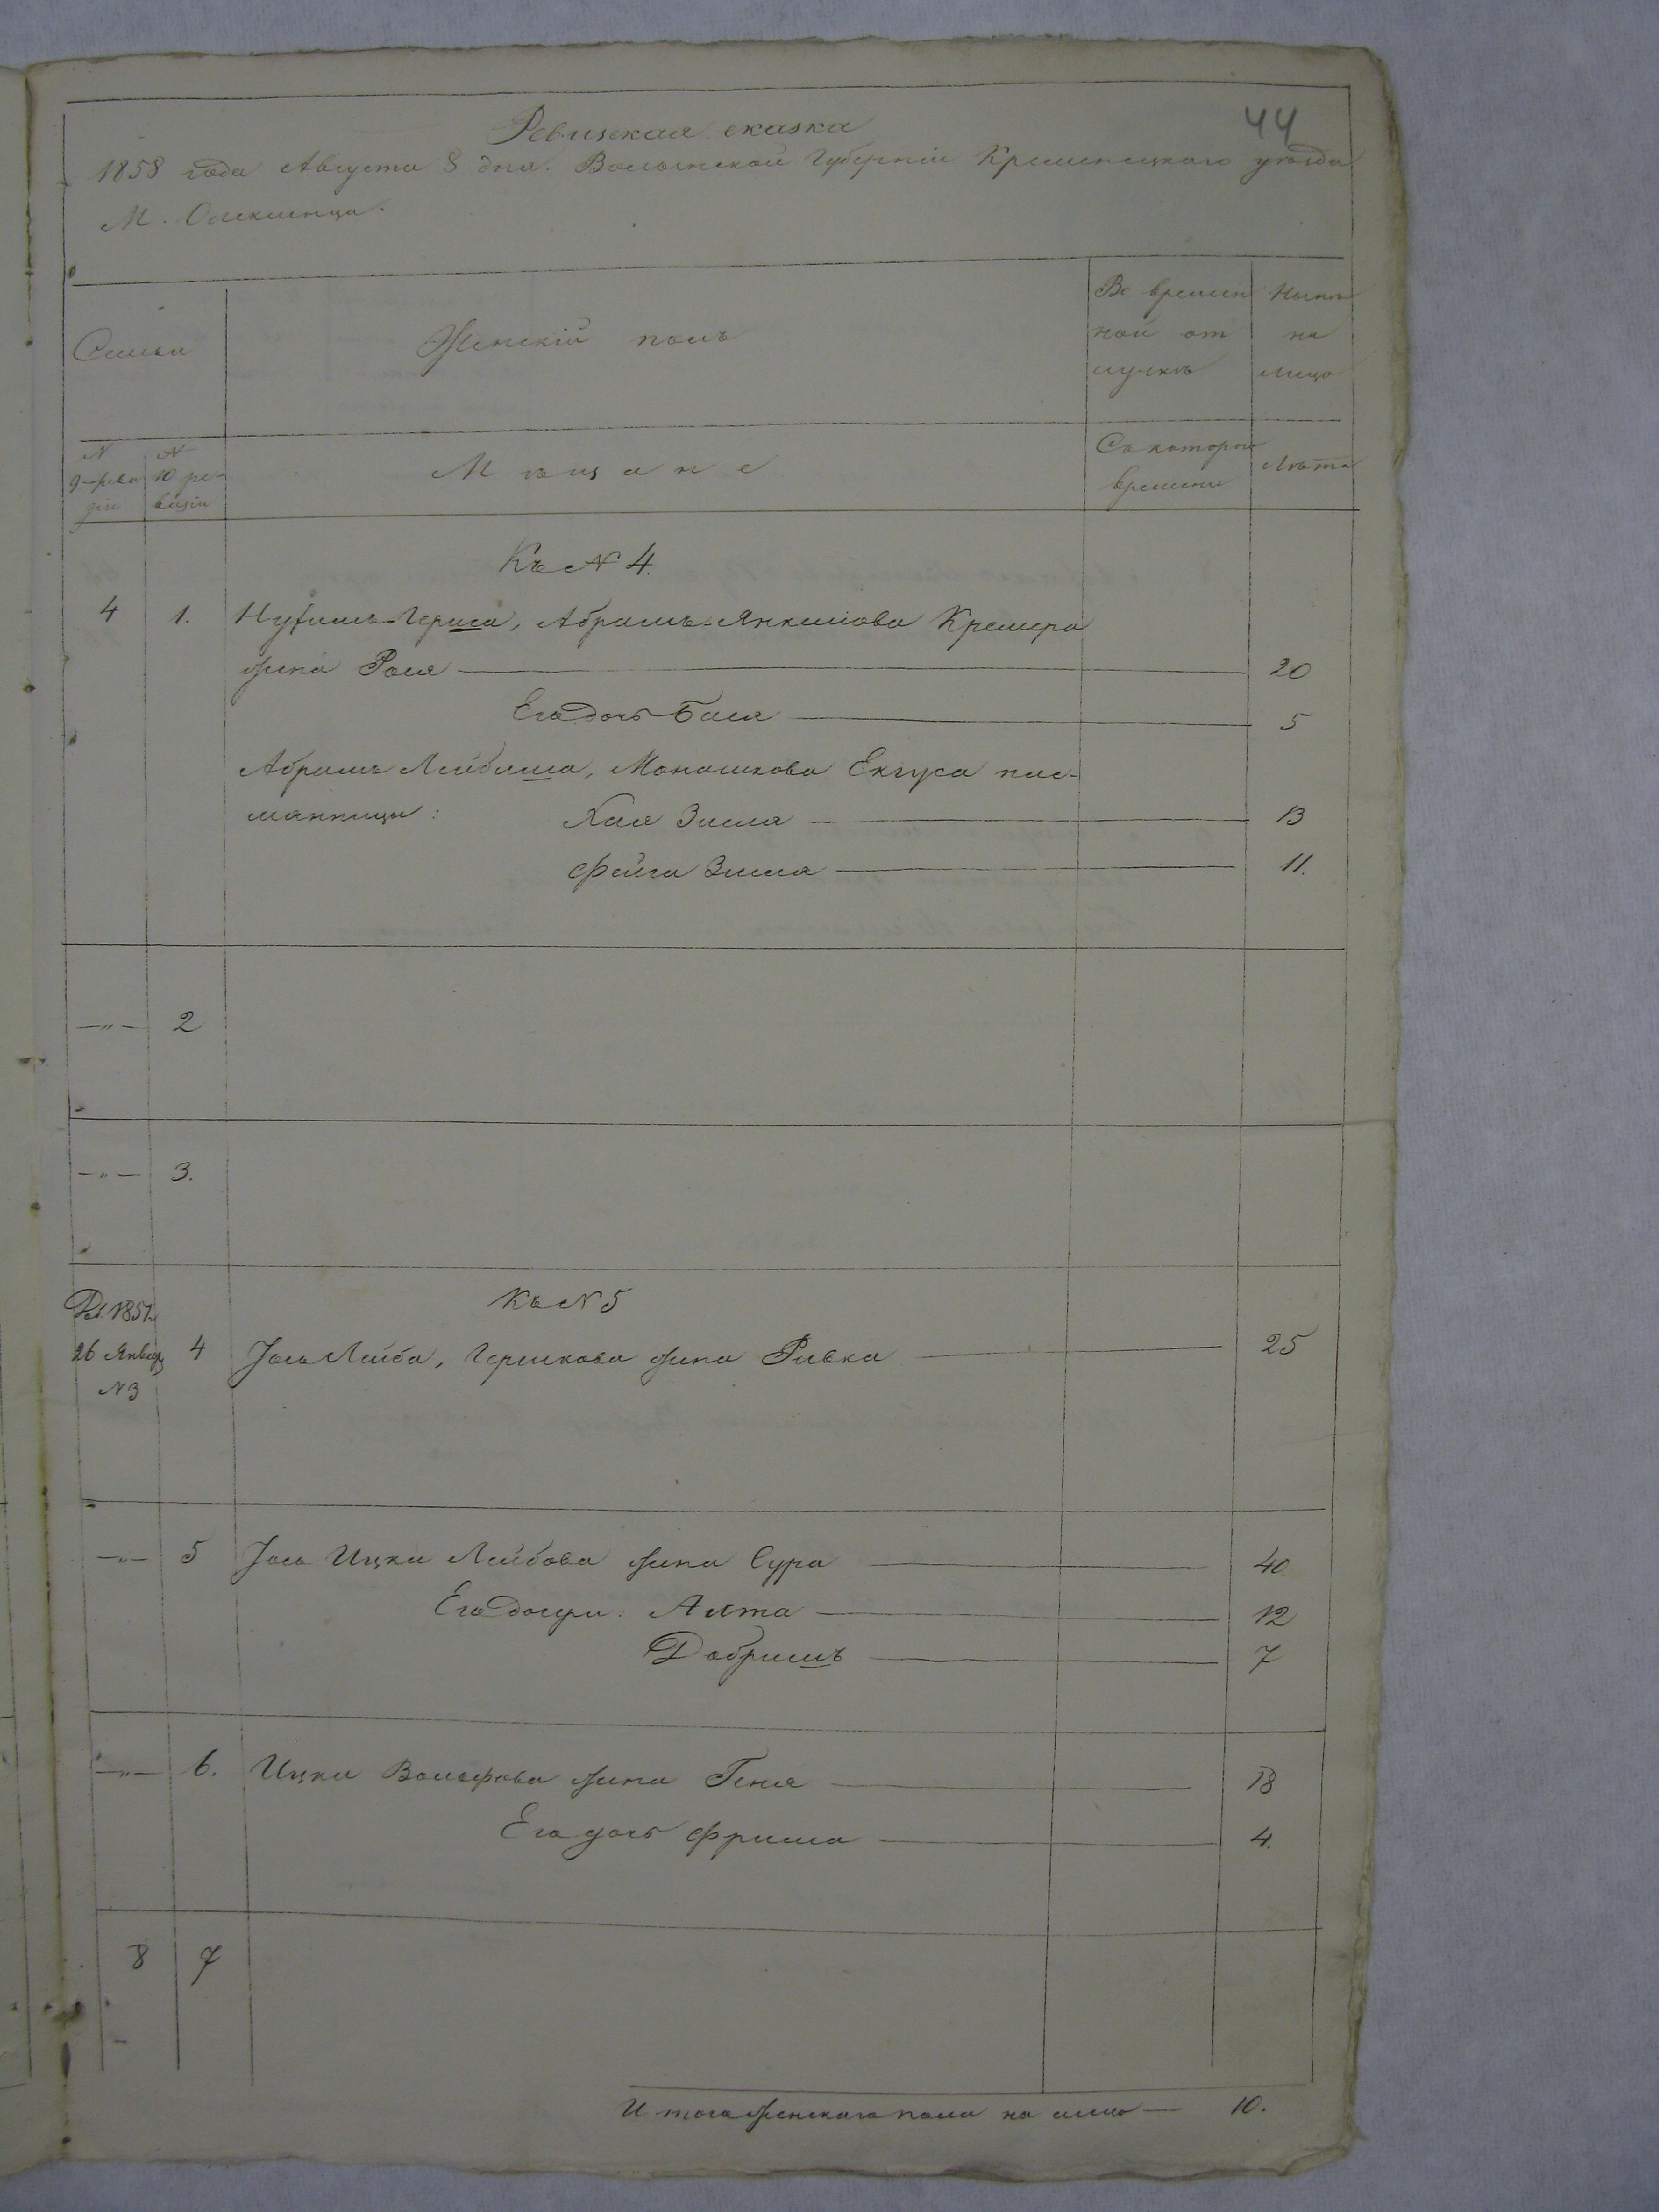 44
Ревизская сказка
1858 года Августа 8 дня. Волынской Губерніи Кременецкаго уѣзда
М. Олексинца.
Семьи
Женскій полъ
Во времен
ной от
лучкѣ
Нынѣ
на
лицо
N
9-реви
зіи
N
10 ре-
визіи
Мѣщане
Съ котораго
времени
Лѣта
Къ N 4.
4 1. Нухимъ-Герша, Абрамъ-Янкелiова Кремера
жена Роля 20
Его дочь Бася 5
Абрамъ Лейбиша, Монашкова Екгуса пле-
мянницы: Хая Зисля 13
Фейга Зисля 11.
—„— 2
—„— 3.
Къ N 5
Рев. 1851.
26 Январ
N 3
4 Іось Лейба, Гершкова жена Ривка 25
—„— 5 Іось Ицки Лейбова жена Сура 40
Его дочери: Алта 12
Добришъ 7
—„— 6. Ицки Вольфова жена Геня 18
Его дочь Фрима 4.
8 7
Итого женскаго пола на лицо — 10.